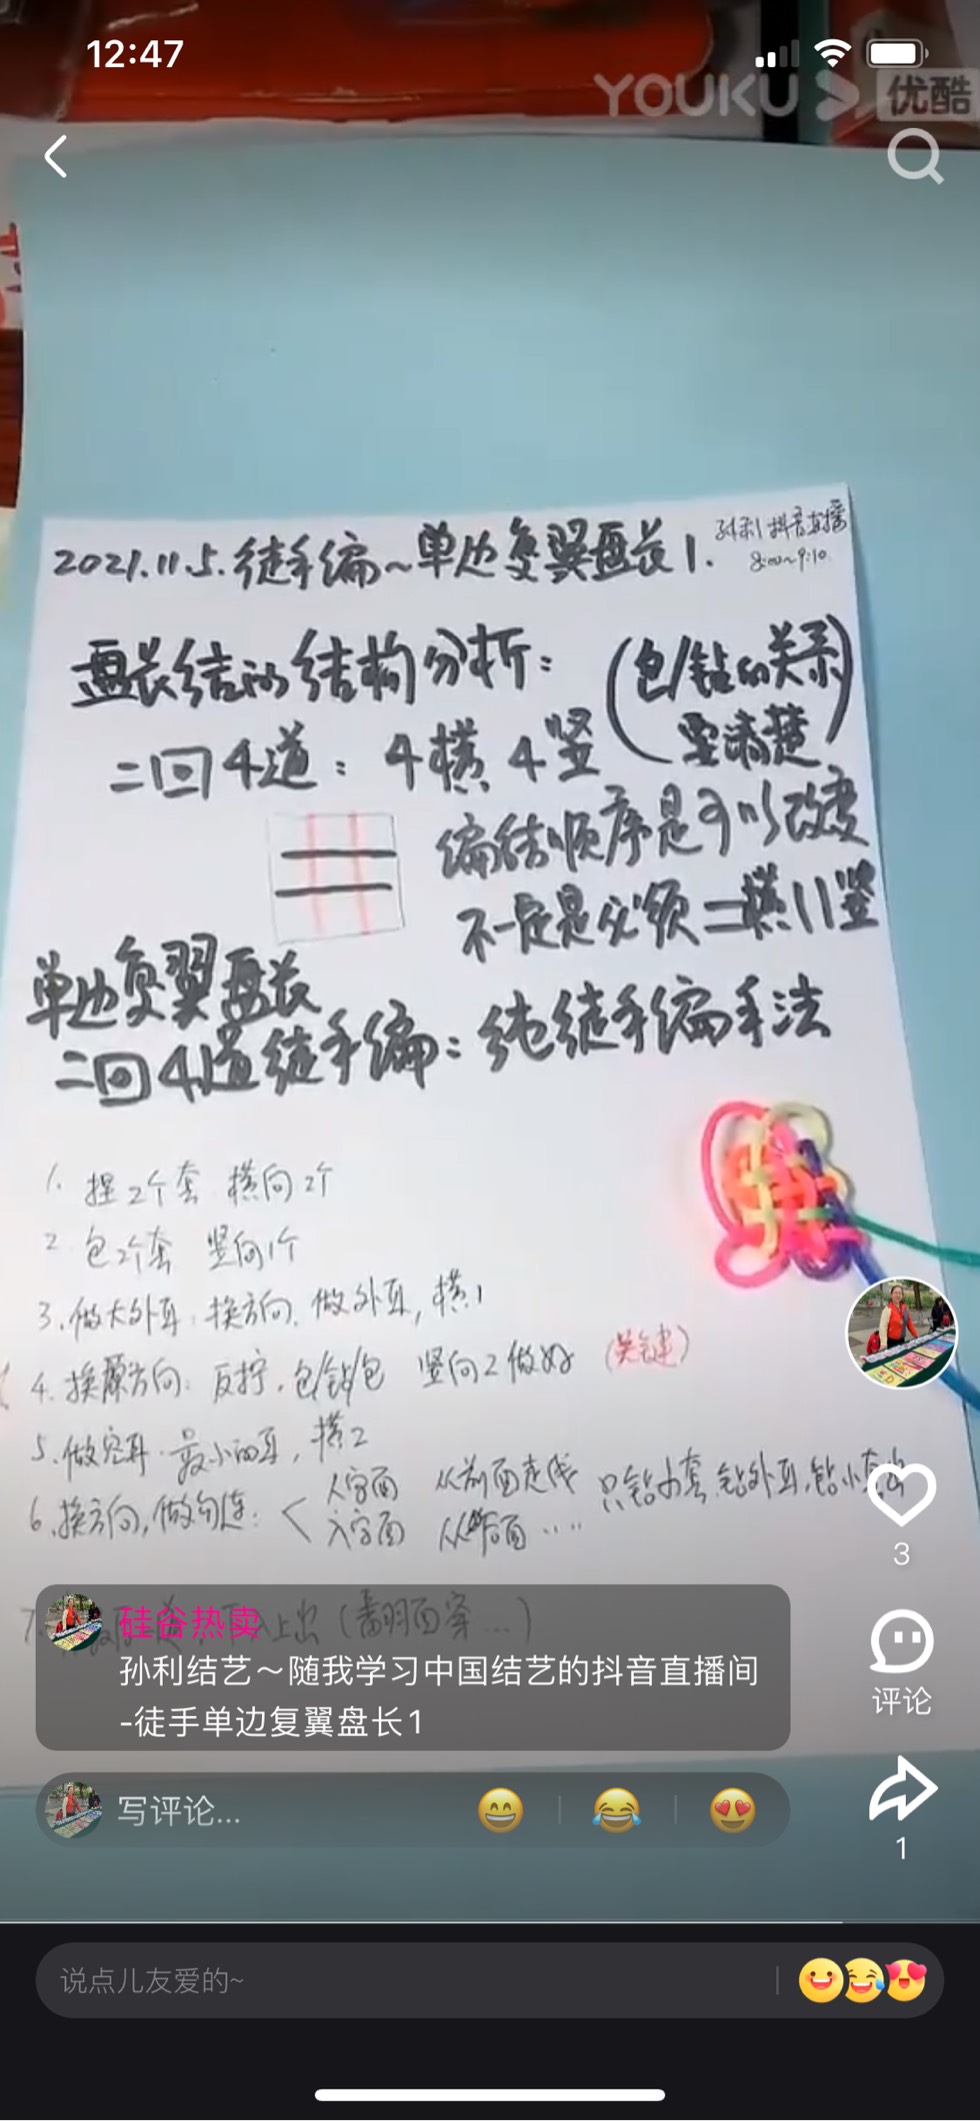 12:47
YOUKU 优酷
2021.11.5.徒手编~单边复翼盘长1.
孙利抖音直播
8:00~9:10
盘长结的结构分析:
(包/钻的关系
要清楚)
二回4道: 4横4竖
编结顺序是可以改变
不一定是必须二横11竖
单边复翼盘长
二回4道徒手编:纯徒手编手法
1. 捏2个套 横向2个
2. 包2个套 竖向1个
3.做大外耳.换方向.做外耳,横1
4.换原方向:反拧.包/钻/包 竖向2做好 (关键)
5.做完耳.最小的耳,横2
6.换方向,做勾连:< 人字面 从前面走线 只钻小套.钻外耳,钻小套出
入字面 从后面....
7. 上出(翻羽面穿...)
硅谷热卖
孙利结艺～随我学习中国结艺的抖音直播间
-徒手单边复翼盘长1
写评论...
3
评论
1
说点儿友爱的~